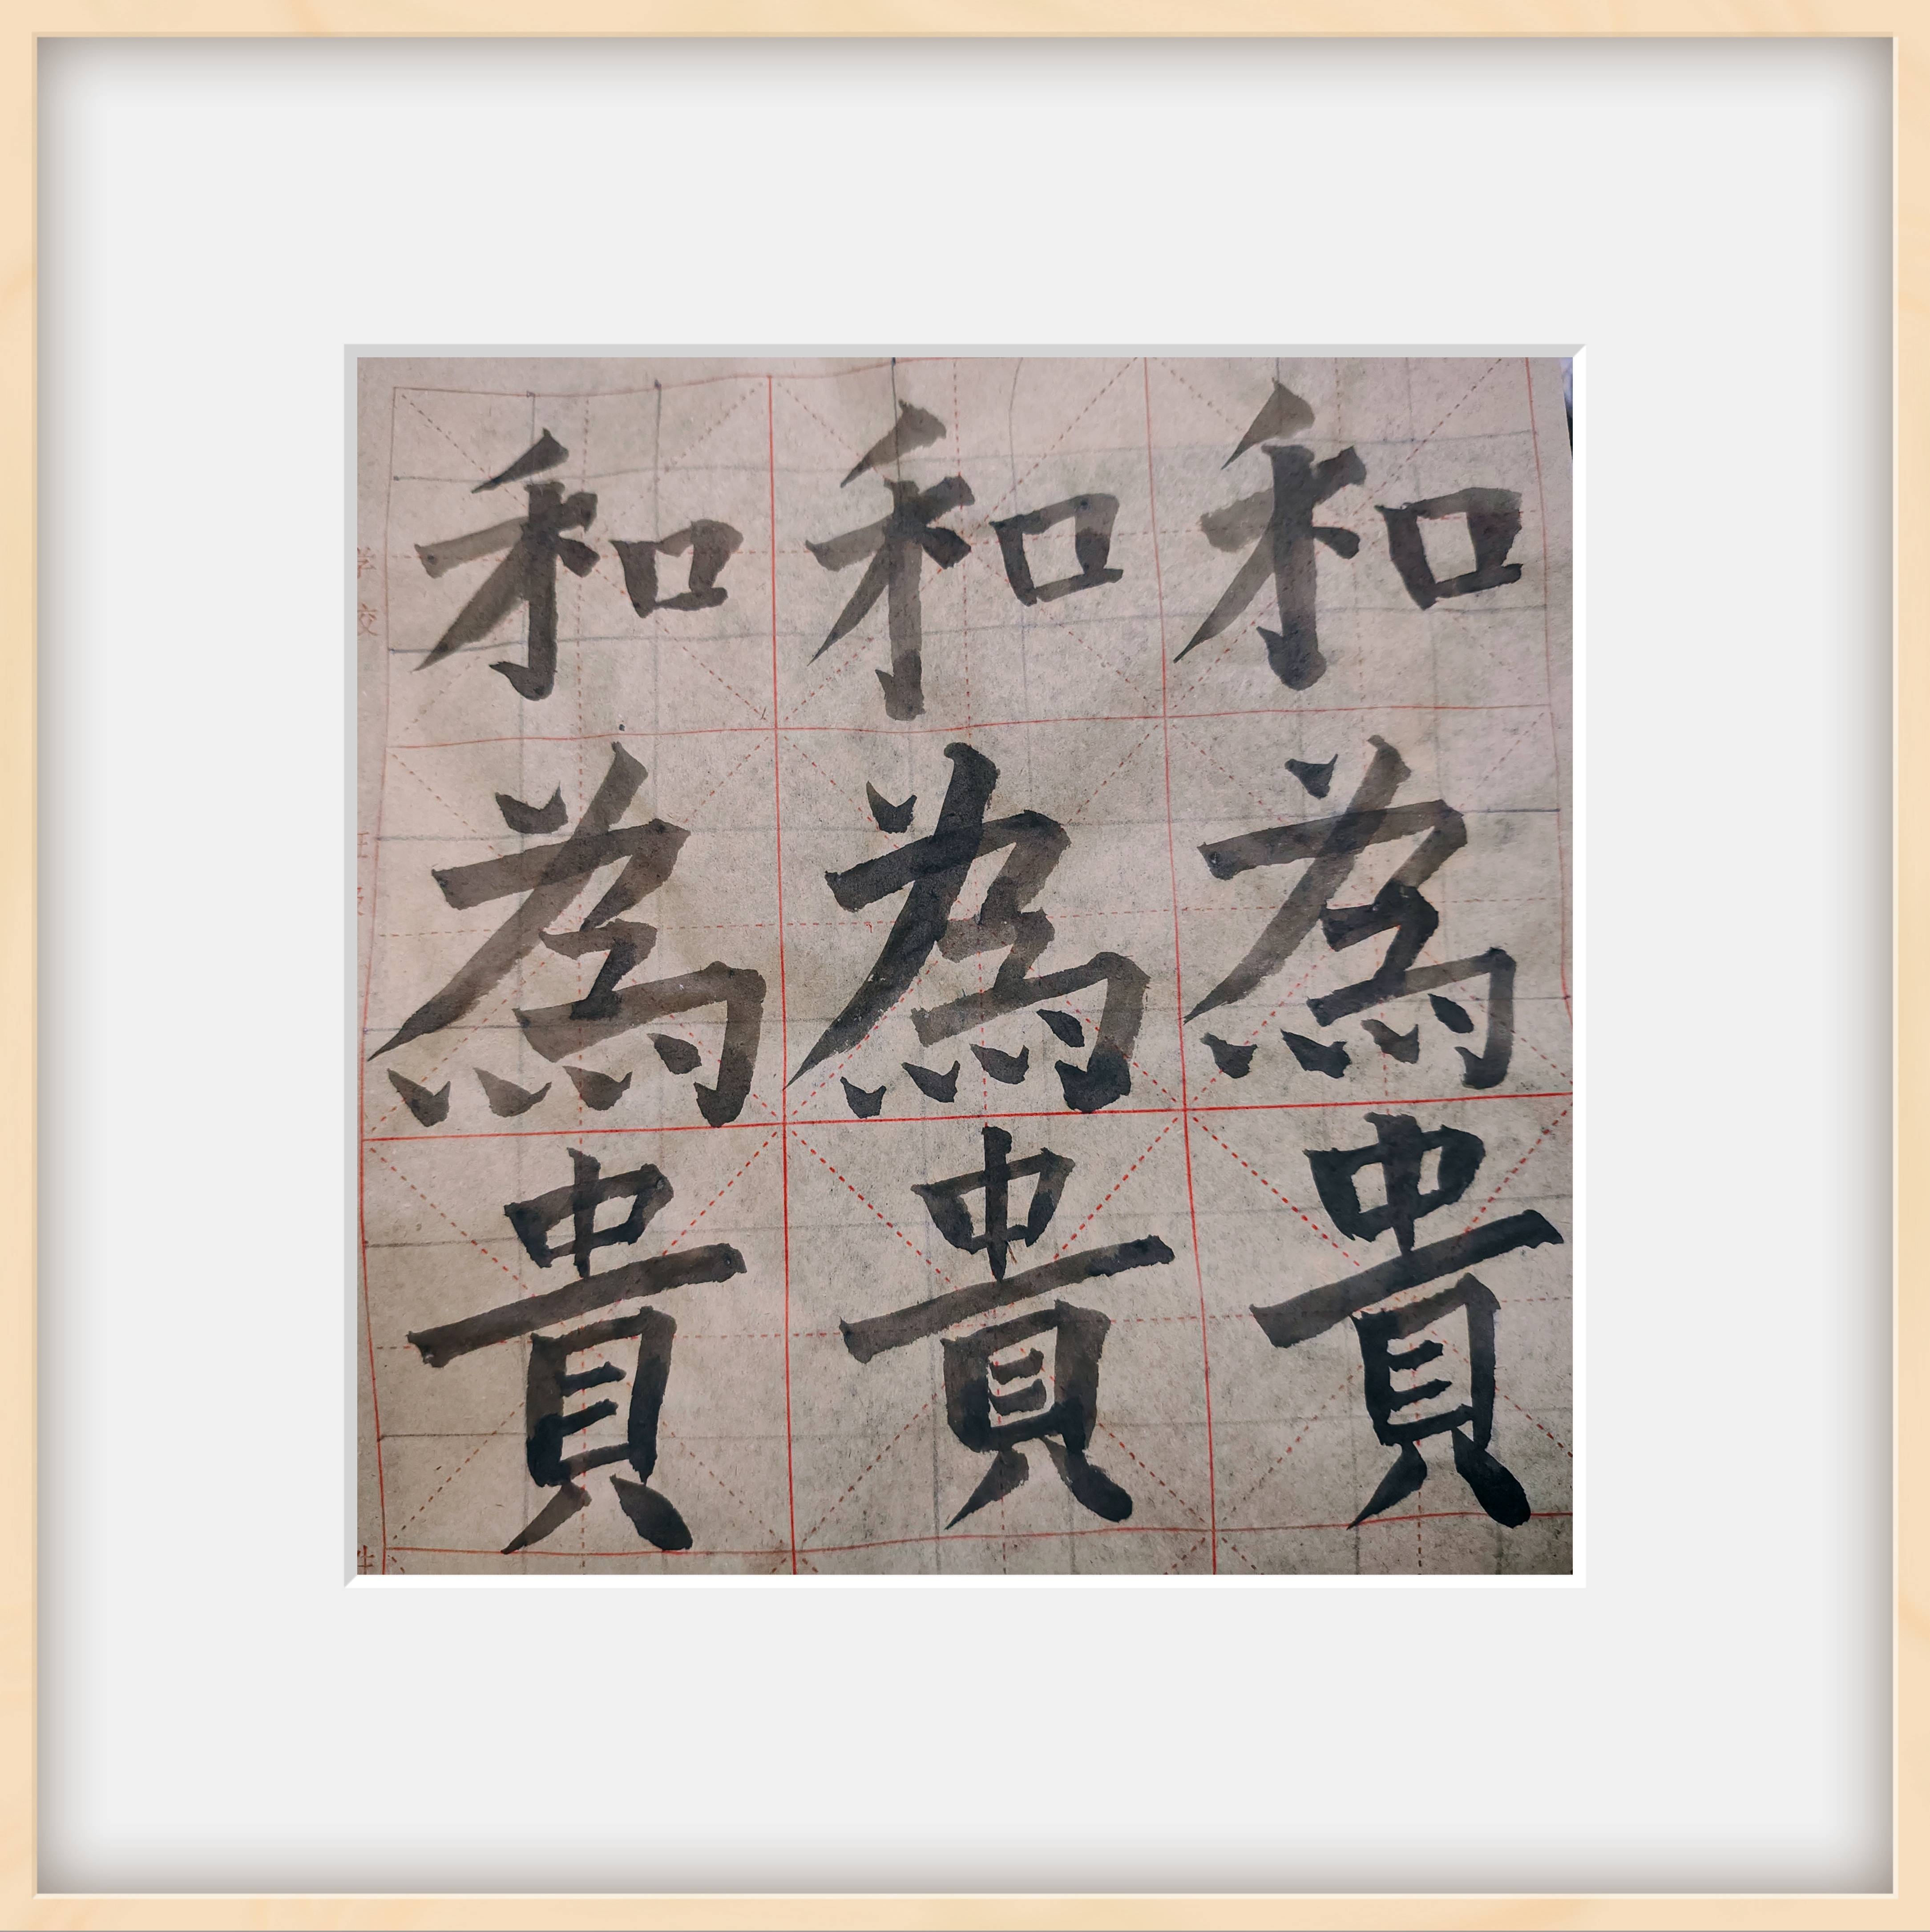 和為貴
和為貴
和為貴